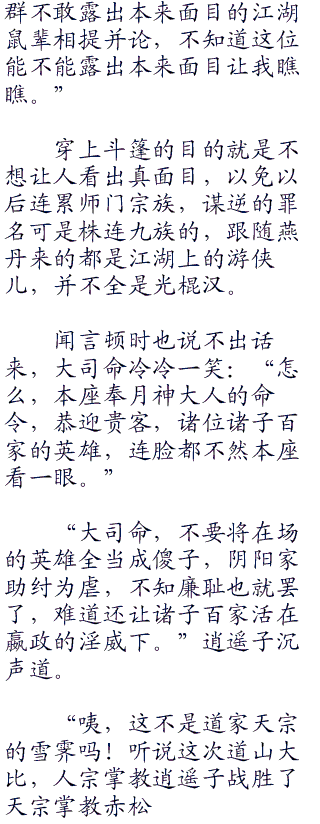 群不敢露出本来面目的江湖
鼠辈相提并论，不知道这位
能不能露出本来面目让我瞧
瞧。”
穿上斗篷的目的就是不
想让人看出真面目，以免以
后连累师门宗族，谋逆的罪
名可是株连九族的，跟随燕
丹来的都是江湖上的游侠
儿，并不全是光棍汉。
闻言顿时也说不出话
来，大司命冷冷一笑：“怎
么，本座奉月神大人的命
令，恭迎贵客，诸位诸子百
家的英雄，连脸都不然本座
看一眼。”
“大司命，不要将在场
的英雄全当成傻子，阴阳家
助纣为虐，不知廉耻也就罢
了，难道还让诸子百家活在
嬴政的淫威下。”逍遥子沉
声道。
“咦，这不是道家天宗
的雪霁吗！听说这次道山大
比，人宗掌教逍遥子战胜了
天宗掌教赤松